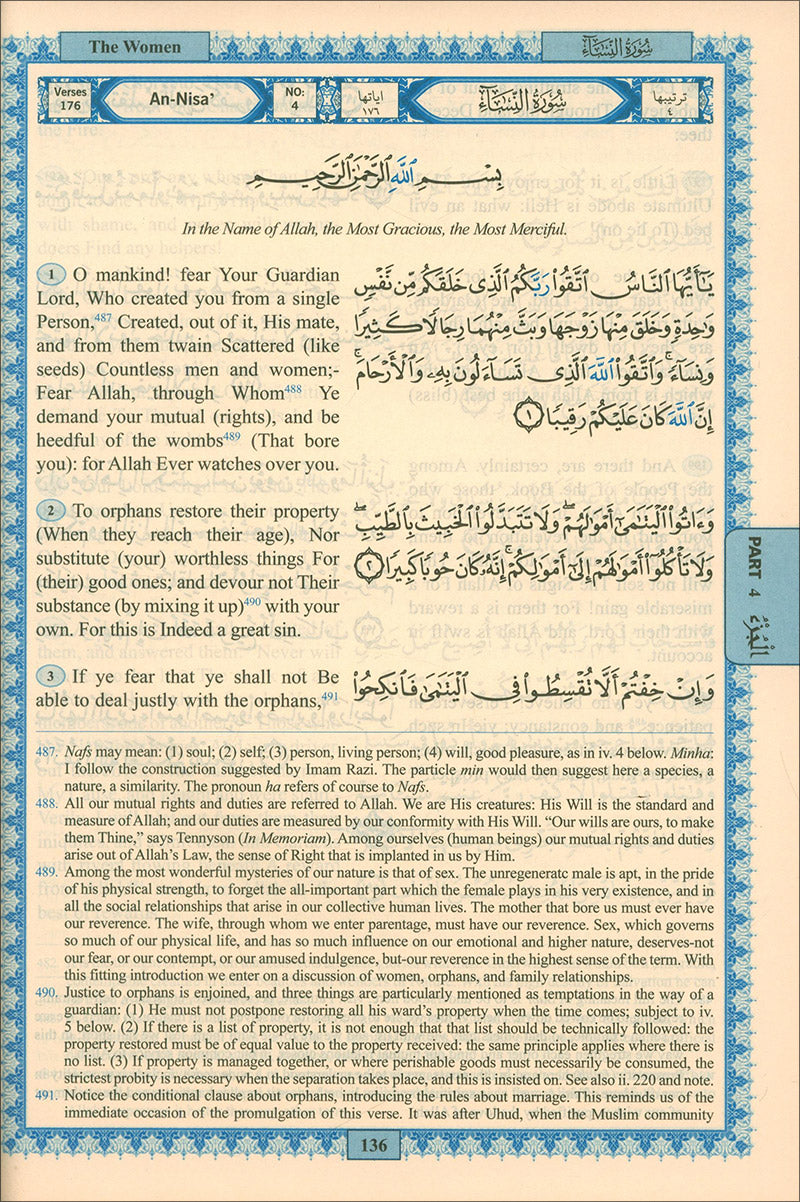 The Women
سُورَةُ النِّسَاءِ
Verses 176
An-Nisa’
NO: 4
اياتها ١٧٦
سُورَةُ النِّسَاءِ
ترتيبها ٤
بِسْمِ اللَّهِ الرَّحْمَٰنِ الرَّحِيمِ
In the Name of Allah, the Most Gracious, the Most Merciful.
1 O mankind! fear Your Guardian
Lord, Who created you from a single
Person,487 Created, out of it, His mate,
and from them twain Scattered (like
seeds) Countless men and women;-
Fear Allah, through Whom488 Ye
demand your mutual (rights), and be
heedful of the wombs489 (That bore
you): for Allah Ever watches over you.
يَٰٓأَيُّهَا ٱلنَّاسُ ٱتَّقُوا۟ رَبَّكُمُ ٱلَّذِى خَلَقَكُم مِّن نَّفْسٍ
وَٰحِدَةٍ وَخَلَقَ مِنْهَا زَوْجَهَا وَبَثَّ مِنْهُمَا رِجَالًا كَثِيرًا
وَنِسَآءً ۚ وَٱتَّقُوا۟ ٱللَّهَ ٱلَّذِى تَسَآءَلُونَ بِهِۦ وَٱلْأَرْحَامَ ۚ
إِنَّ ٱللَّهَ كَانَ عَلَيْكُمْ رَقِيبًا ١
2 To orphans restore their property
(When they reach their age), Nor
substitute (your) worthless things For
(their) good ones; and devour not Their
substance (by mixing it up)490 with your
own. For this is Indeed a great sin.
وَءَاتُوا۟ ٱلْيَتَٰمَىٰٓ أَمْوَٰلَهُمْ ۖ وَلَا تَتَبَدَّلُوا۟ ٱلْخَبِيثَ بِٱلطَّيِّبِ ۖ
وَلَا تَأْكُلُوٓا۟ أَمْوَٰلَهُمْ إِلَىٰٓ أَمْوَٰلِكُمْ ۚ إِنَّهُۥ كَانَ حُوبًا كَبِيرًا ٢
3 If ye fear that ye shall not Be
able to deal justly with the orphans,491
وَإِنْ خِفْتُمْ أَلَّا تُقْسِطُوا۟ فِى ٱلْيَتَٰمَىٰ فَٱنكِحُوا۟
PART 4 الْجُزْءُ
487. Nafs may mean: (1) soul; (2) self; (3) person, living person; (4) will, good pleasure, as in iv. 4 below. Minha:
I follow the construction suggested by Imam Razi. The particle min would then suggest here a species, a
nature, a similarity. The pronoun ha refers of course to Nafs.
488. All our mutual rights and duties are referred to Allah. We are His creatures: His Will is the standard and
measure of Allah; and our duties are measured by our conformity with His Will. “Our wills are ours, to make
them Thine,” says Tennyson (In Memoriam). Among ourselves (human beings) our mutual rights and duties
arise out of Allah’s Law, the sense of Right that is implanted in us by Him.
489. Among the most wonderful mysteries of our nature is that of sex. The unregeneratc male is apt, in the pride
of his physical strength, to forget the all-important part which the female plays in his very existence, and in
all the social relationships that arise in our collective human lives. The mother that bore us must ever have
our reverence. The wife, through whom we enter parentage, must have our reverence. Sex, which governs
so much of our physical life, and has so much influence on our emotional and higher nature, deserves-not
our fear, or our contempt, or our amused indulgence, but-our reverence in the highest sense of the term. With
this fitting introduction we enter on a discussion of women, orphans, and family relationships.
490. Justice to orphans is enjoined, and three things are particularly mentioned as temptations in the way of a
guardian: (1) He must not postpone restoring all his ward’s property when the time comes; subject to iv.
5 below. (2) If there is a list of property, it is not enough that that list should be technically followed: the
property restored must be of equal value to the property received: the same principle applies where there is
no list. (3) If property is managed together, or where perishable goods must necessarily be consumed, the
strictest probity is necessary when the separation takes place, and this is insisted on. See also ii. 220 and note.
491. Notice the conditional clause about orphans, introducing the rules about marriage. This reminds us of the
immediate occasion of the promulgation of this verse. It was after Uhud, when the Muslim community
136